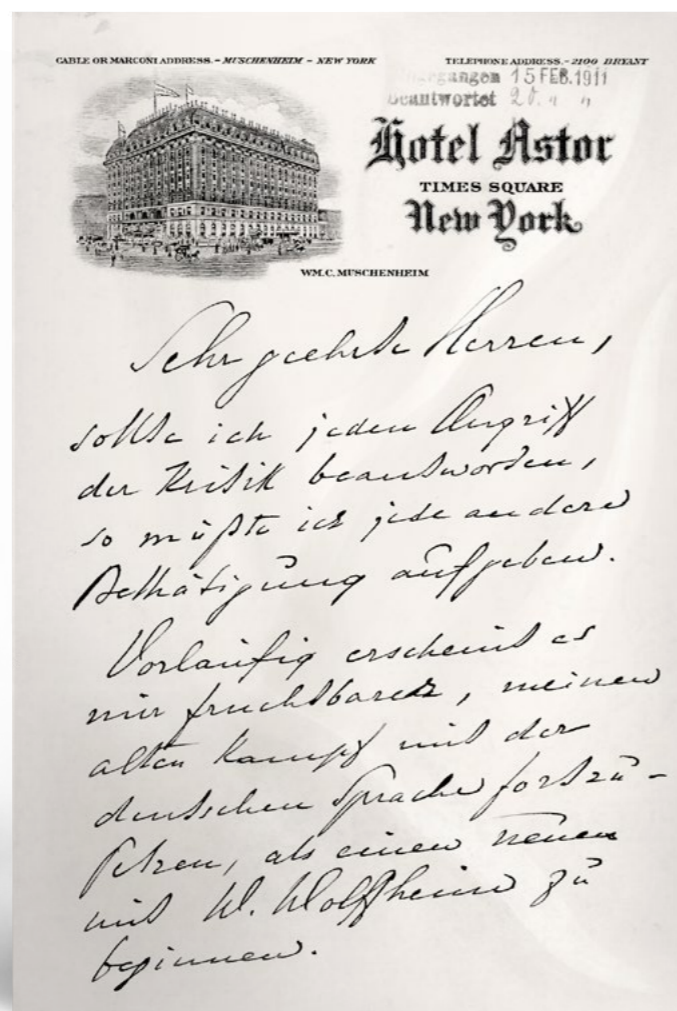 CABLE OR MARCONI ADDRESS.-MUSCHENHEIM-NEW YORK
TELEPHONE ADDRESS.-2100 BRYANT
Eingegangen 15 FEB. 1911
Beantwortet 20. " "
Hotel Astor
TIMES SQUARE
New York
WM. C. MUSCHENHEIM
Sehr geehrte Herren,
sollte ich jeden Angriff
der Kritik beantworten,
so müßte ich jede andere
Bethätigung aufgeben.
Vorläufig erscheint es
mir fruchtbarer, meinen
alten Kampf mit der
deutschen Sprache fortzu-
setzen, als einen neuen
mit W. Wolffheim zu
beginnen.